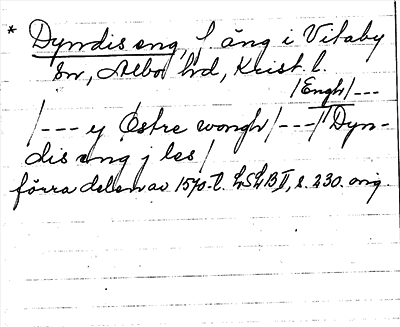 * Dyndis eng, f. äng i Vitaby
sn, Albo hd, Krist. l.
/Engh/---
/--- y Östre wongh/---/ Dyn-
dis eng j les/
förra delen av 1570-t. LSLB II, s. 230. orig.